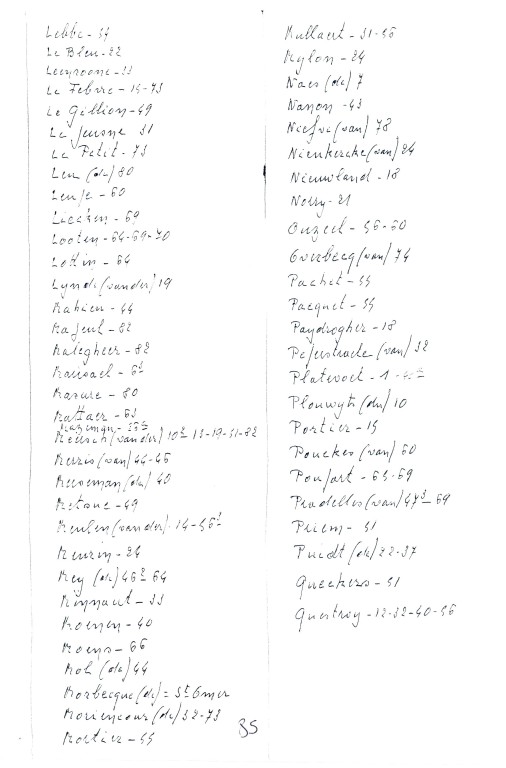 Lebbe - 57
Le Bleu - 22
Le Febvre - 15-73
Le Gillion - 49
Le Jeusne 51
Le Petit - 73
Leu (de) 80
Leuje - 60
Liesten - 69
Looten - 64-69-70
Lottin - 64
Lynde (vander) 19
Mahieu - 44
Majeul - 82
Malegheer - 82
Masure - 80
Mattaer - 63
Meusch (vander)
Merris (van) 44-45
Meteman (de) 40
Metsue - 49
Meulen (vander) - 14-56¹
Meurin - 24
Mey (de) 46² 64
Minnaut - 33
Moenen - 40
Moens - 66
Mol (de) 44
Morbecque (de) = St Omer
Moriencour (de) 32-73
Mortier - 55
85
Mullaert - 31-56
Mylon - 24
Naes (de) 7
Nanon - 43
Niefve (van) 78
Nienkercke (van) 24
Nieuwland - 18
Noiry - 21
Onzeel - 56-60
Overbecq (van) 74
Pachet - 55
Pacquet - 55
Paydrogher - 18
Pejenstraete (van) 32
Platevoet - 1
Plouwyts (de) 10
Portier - 15
Pouckes (van) 60
Poujart - 63-69
Pradelles (van) 47³ - 69
Priem - 51
Puedt (de) 22-37
Queekers - 51
Questroy - 12-32-40-56